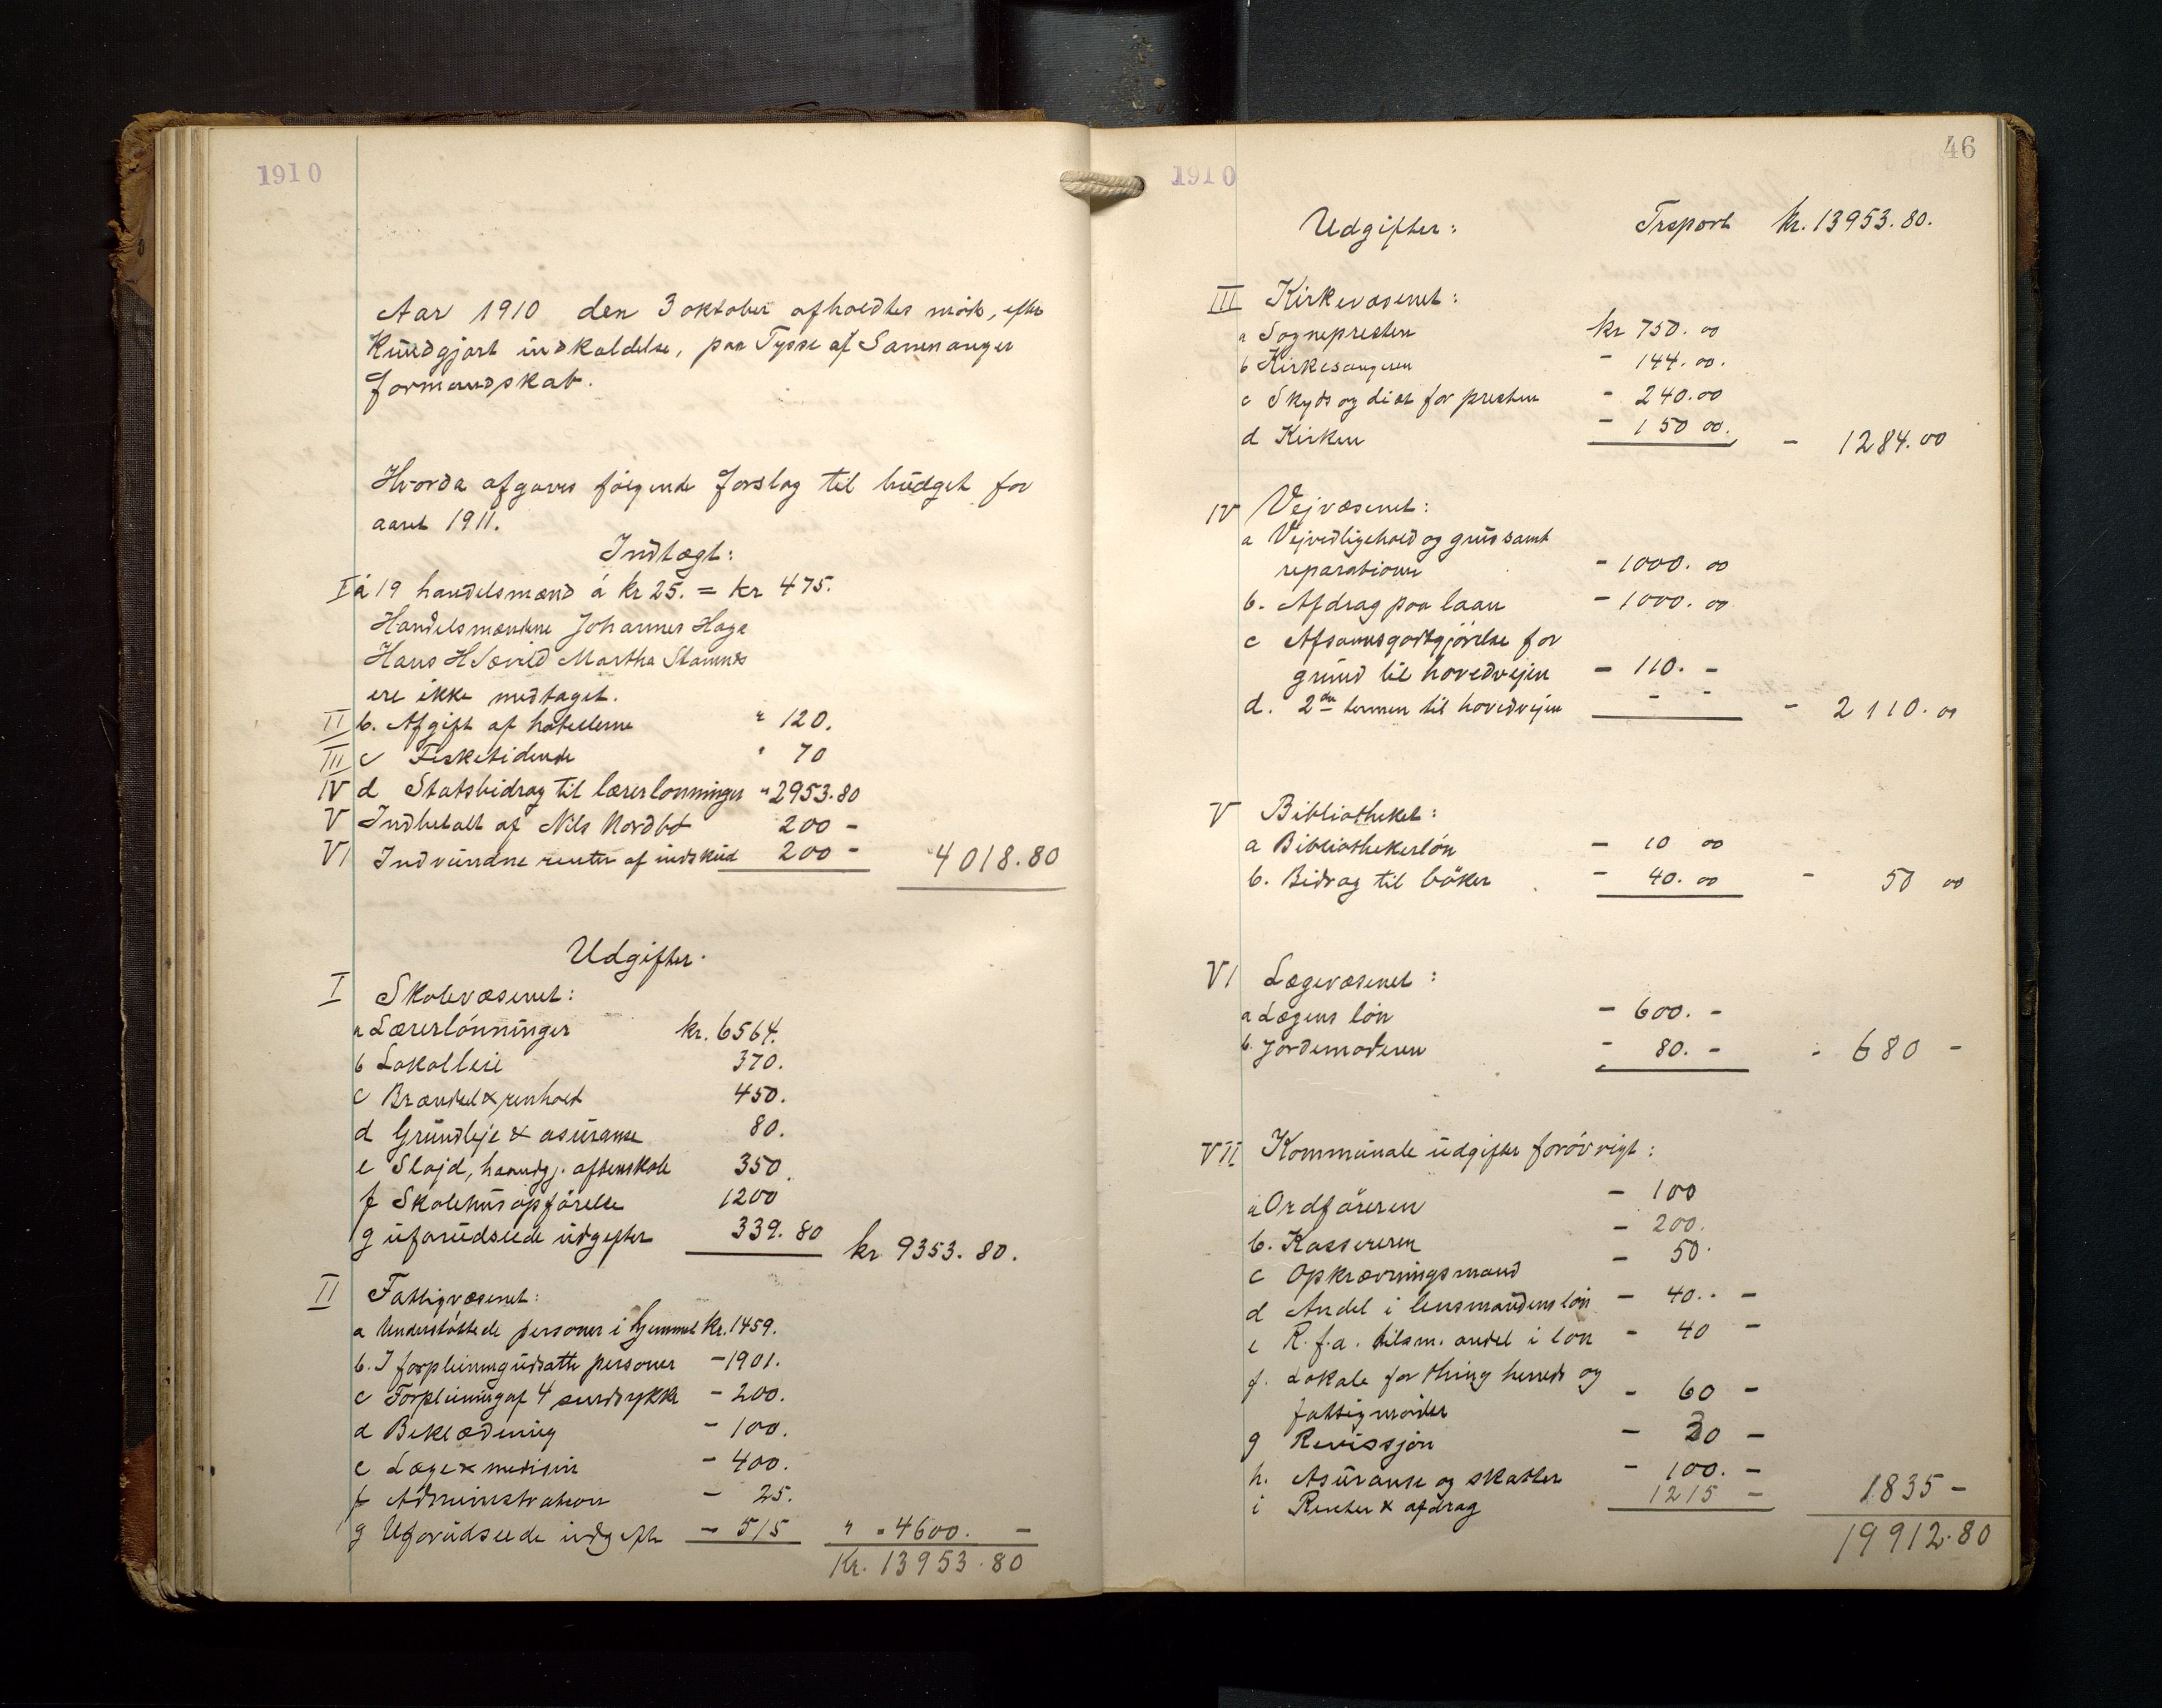 1910
Aar 1910 den 3 oktober afholdtes möte, efter
Kundgjort indkaldelse, paa Tysse af Samnanger
formandskab.
Hvorda afgaves følgende forslag til budget for
aaret 1911.
Indtægt:
I a 19 handelsmænd á kr 25. = kr 475.
Handelsmændene Johannes Hage
Hans H Sævild Martha Stamnes
ere ikke medtaget.
II b. Afgift af hotellerne " 120.
III c Fisketidende " 70
IV d Statsbidrag til lærerlønninger " 2953.80
V Indbetalt af Nils Nordbø 200 -
VI Indvundne renter af indskud 200 - 4018.80
Udgifter.
I Skolevæsenet:
a Lærerlönninger kr. 6564.
b Lokalleie 370.
c Brændsel & renhold 450.
d Grundleje & asuranse 80.
e Slöjd, haandgj. aftenskole 350.
f Skolehusopförelse 1200
g uforudseede udgifter 339.80 kr 9353.80.
II Fattigvæsenet:
a Understöttede personer i hjemmet Kr. 1459.
b. I forpleining udsatte personer - 1901.
c Forpleining af 4 sindsyke - 200.
d Beklædning - 100.
e Læge & medisin - 400.
f Administration - 25.
g Uforudseede udgifter - 515 " - 4600. -
Kr. 13953.80
1910
46
Udgifter: Trsport kr. 13953.80.
III Kirkevæsenet:
a Sognepresten kr 750.00
b Kirkesangeren - 144.00.
c Skyds og diæt for presten - 240.00
d Kirken - 150 00. - 1284.00
IV Vejvæsenet:
a Vejvedligehold og grus samt
reparationer - 1000.00
b. Afdrag paa laan - 1000.00
c Afsavnsgodtgjörelse for
grund til hovedvejen - 110. -
d. 2den termin til hovedvejen - - - 2110.00
V Bibliotheket:
a Bibliothekerlön - 10 00
b. Bidrag til böker - 40.00 - 50 00
VI Lægevæsenet:
a Lægens lön - 600. -
b. Jordemoderen - 80. - - 680 -
VII Kommunale udgifter forövrigt:
a Ordföreren - 100
b. Kassereren - 200.
c Opkrævningsmand - 50.
d Andel i lensmandens lön - 40. -
e R.f.a. tilsm. andel i lön - 40 -
f. Lokale for thing herreds og
fattigmöder - 60 -
g Revissjon - 30 -
h. Asuranse og skatter - 100. -
i Renter & afdrag 1215 - 1835 -
19912.80